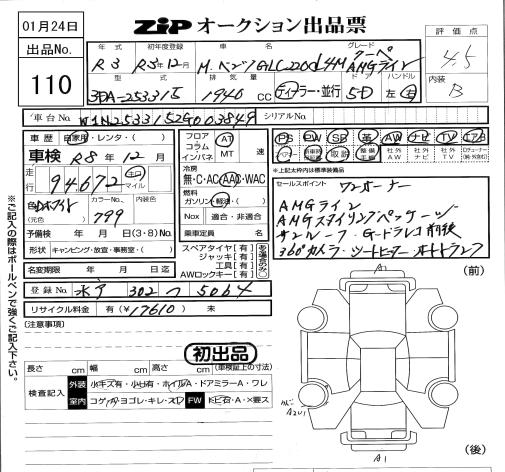 01月24日
ZiP オークション出品票
評価点
4.5
内装
B
出品No.
110
年式 初年度登録 車名 グレード
R3 R3年12月 M.ベンツ GLC220d4M クーペ AMGライン
型式 排気量 ドア ハンドル
3DA-253315 1940 cc ディーラー・並行 5D 左・右
車台No. W1N2533152G003849 シリアルNo.
車歴 自家用・レンタ・( )
車検 R8年12月
走行 94672 キロ マイル
色 (元色) カラーNo. 799 内装色
予備検 年 月 日(3・8)No.
形状 キャンピング・放宣・事務室・( )
名変期限 年 月 日迄
登録No. 水戸 302 つ 5064
リサイクル料金 有(¥17610) 未
フロア コラム インパネ AT MT 速
冷房 無・C・AC・AAC・WAC
燃料 ガソリン・軽油・( )
Nox 適合・非適合
乗車定員 名
スペアタイヤ[有]
ジャッキ[有]
工具[有]
AWロックキー[有]
PS PW SB 革 AW ナビ TV エアB
取説 社外AW 社外ナビ 社外TV
★上記☆枠内は標準装備品
セールスポイント ワンオーナー
AMGライン
AMGスタイリングパッケージ
サンルーフ・Gードラレコ前後
360°カメラ・シートヒーター・オートトランク
(前)
A1
[注意事項]
初出品
長さ cm 幅 cm 高さ cm (車検証上の寸法)
検査記入 外装 小キズ有・小凹有・ホイルA・ドアミラーA・ワレ
室内 コゲ・ヨゴレ・キレ・スレ FW トビ石・A・×要ス
A2U1
A1
(後)
※ご記入の際はボールペンで強くご記入下さい。